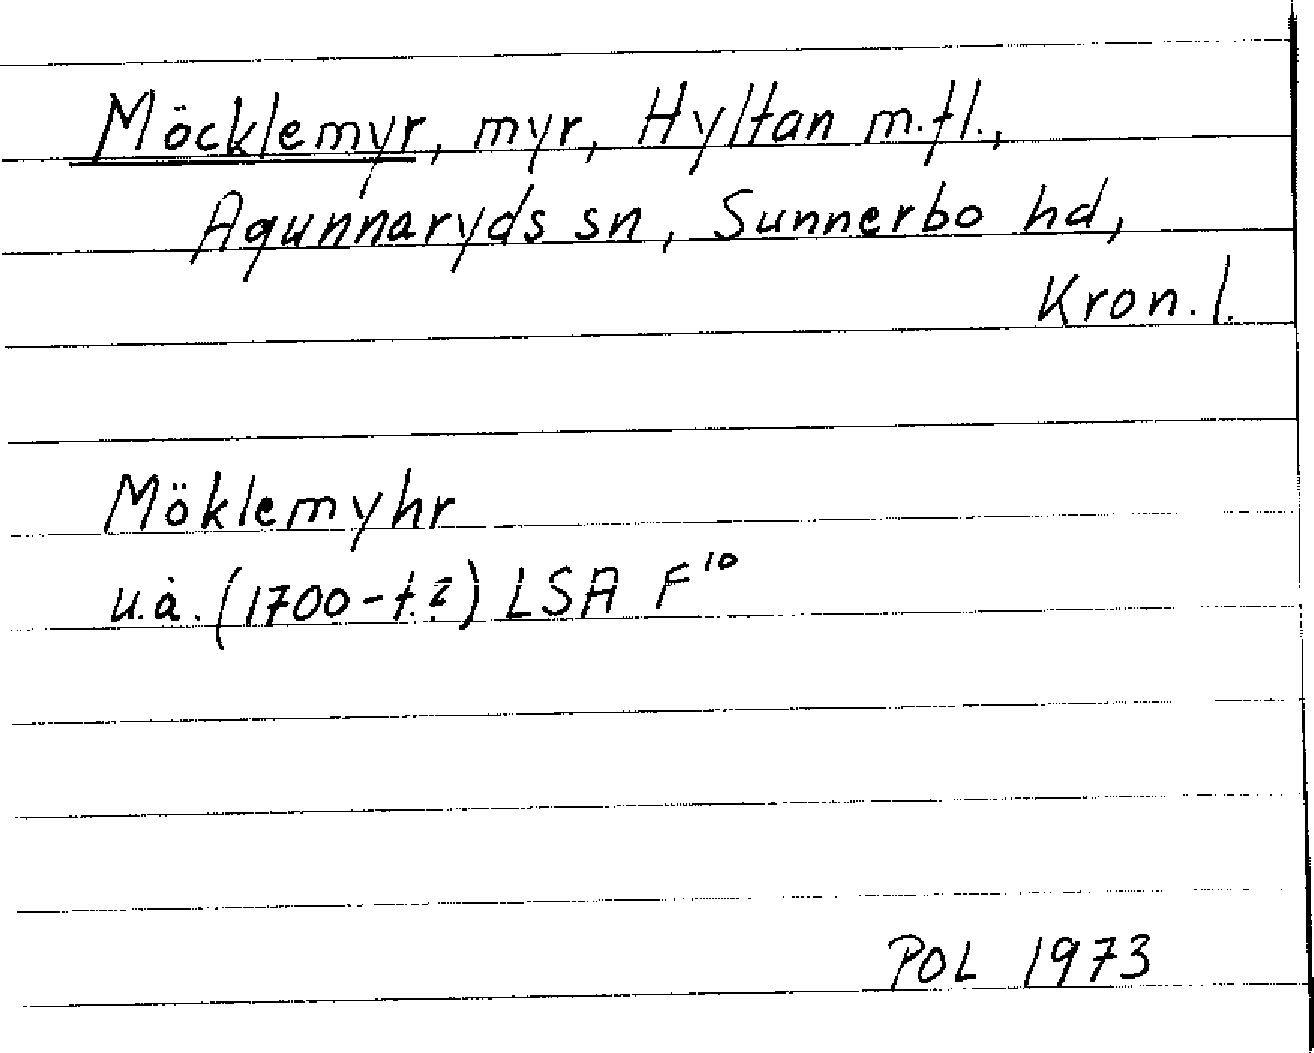 Möcklemyr, myr, Hyltan m.fl.,
Agunnaryds sn, Sunnerbo hd,
Kron. l.
Möklemyhr
u.å. (1700-t.?) LSA F¹⁰
POL 1973